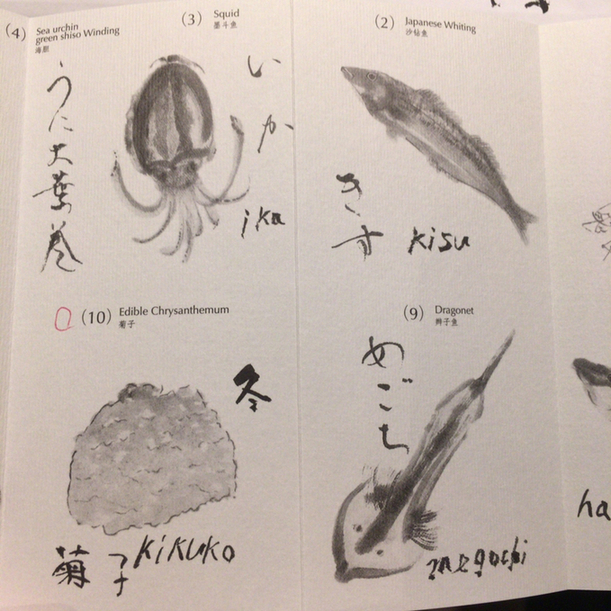 (4) Sea urchin
green shiso Winding
海胆
うに大葉巻
(3) Squid
墨斗鱼
いか
ika
(2) Japanese Whiting
沙钻鱼
きす
kisu
(10) Edible Chrysanthemum
菊子
冬
菊子
kikuko
(9) Dragonet
辫子鱼
めごち
megochi
ha